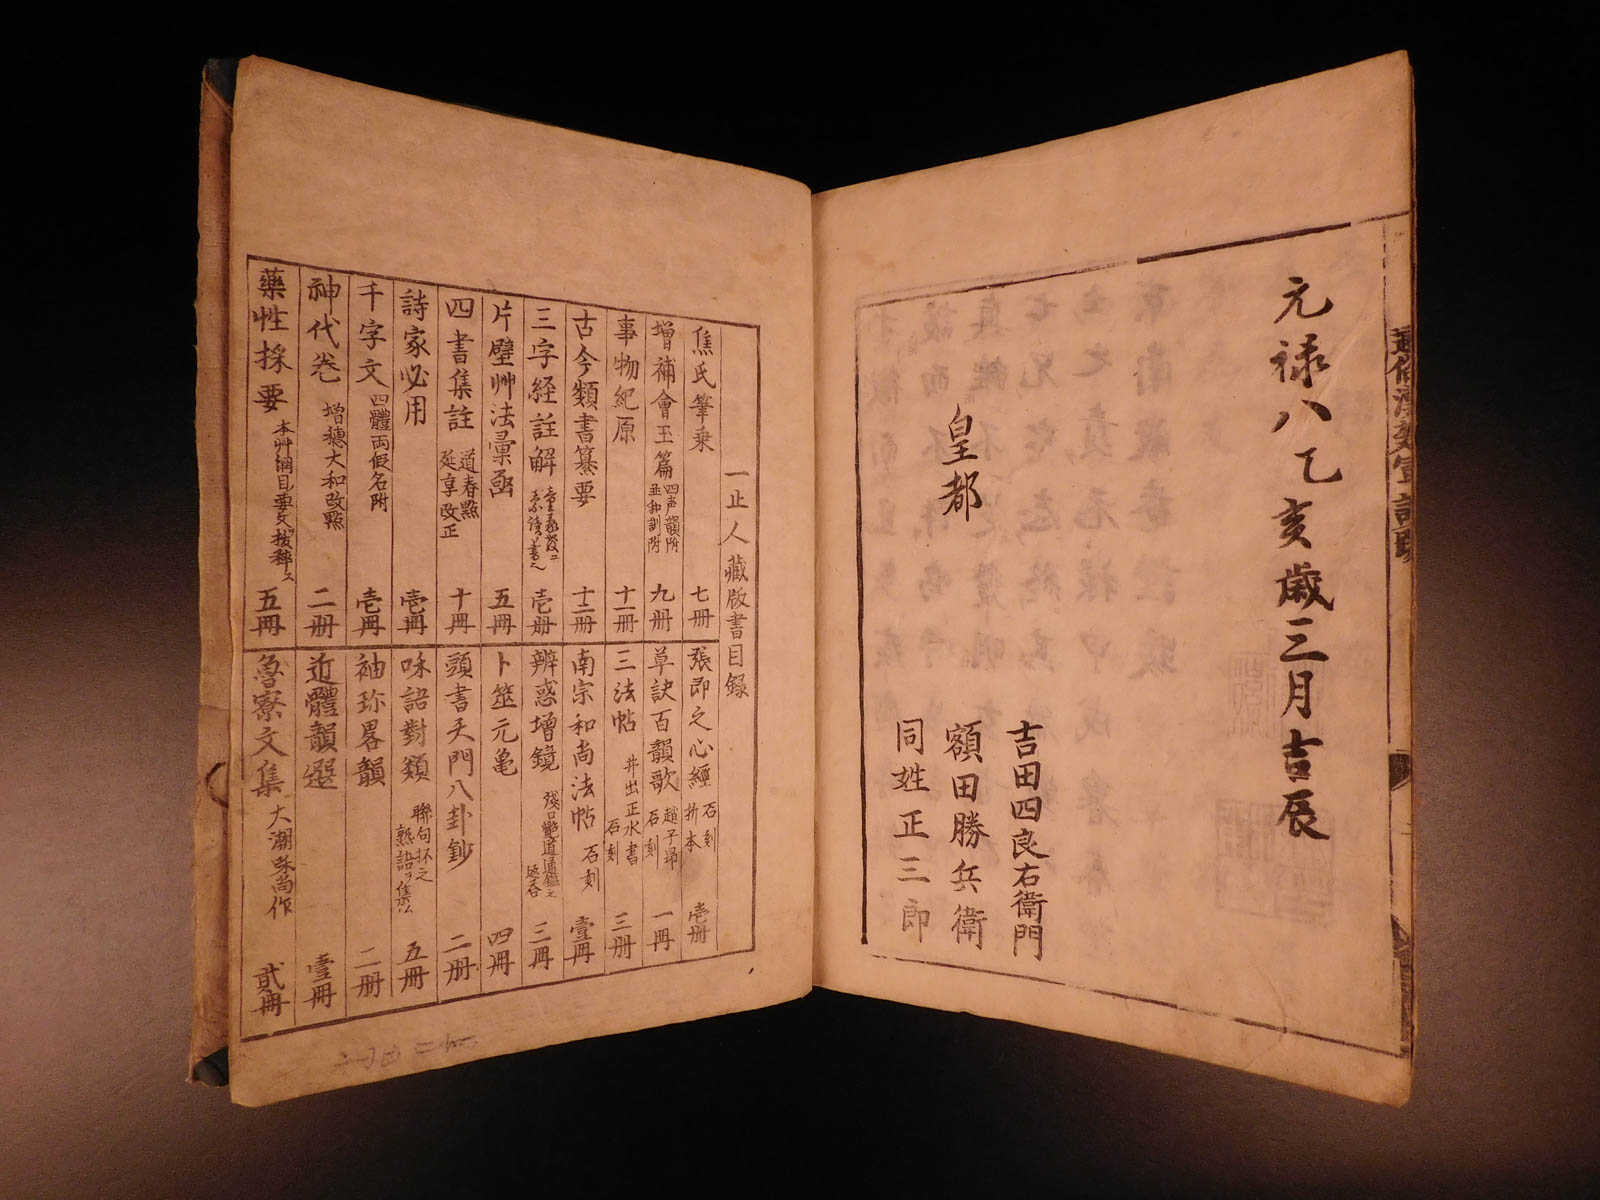 元禄八乙亥歳三月吉辰
皇都
吉田四良右衛門
額田勝兵衛
同姓正三郎
一止人藏版書目録
焦氏筆乗 七册
増補會玉篇 四声韻附 並和訓附 九册
事物紀原 十一册
古今類書纂要 十二册
三字経註解 壱册
片壁艸法彙函 五冊
四書集註 道春點 延享改正 十冊
詩家必用 壱冊
千字文 四體両假名附 壱冊
神代巻 増穂大和改點 二册
藥性採要 五冊
張即之心經 石刻 折本 壱册
草訣百韻歌 趙子昂 石刻 一冊
三法帖 井出正水書 石刻 三册
南宗和尚法帖 石刻 壹冊
辨惑増鏡 三冊
卜筮元亀 四冊
頭書天門八卦鈔 二册
咊語對類 五冊
袖珎畧韻 二册
近體韻選 壹冊
魯寮文集 大潮咊尚作 貳冊